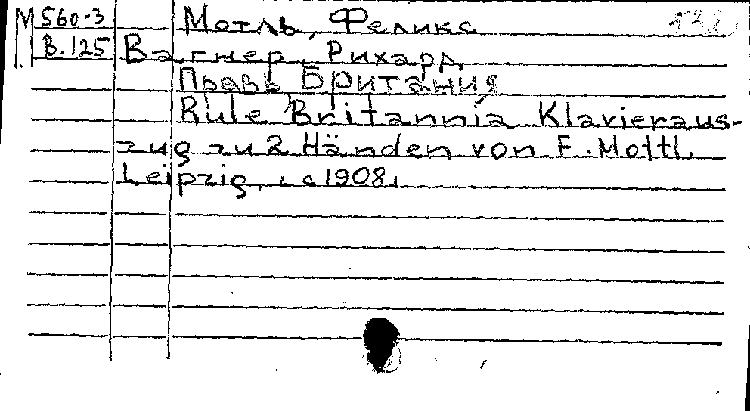 М 560-3 Мотль, Феликс
В.125 Вагнер, Рихард
Правь Британия
Rule Britannia Klavieraus-
zug zu 2 Händen von F. Mottl.
Leipzig, c 1908.